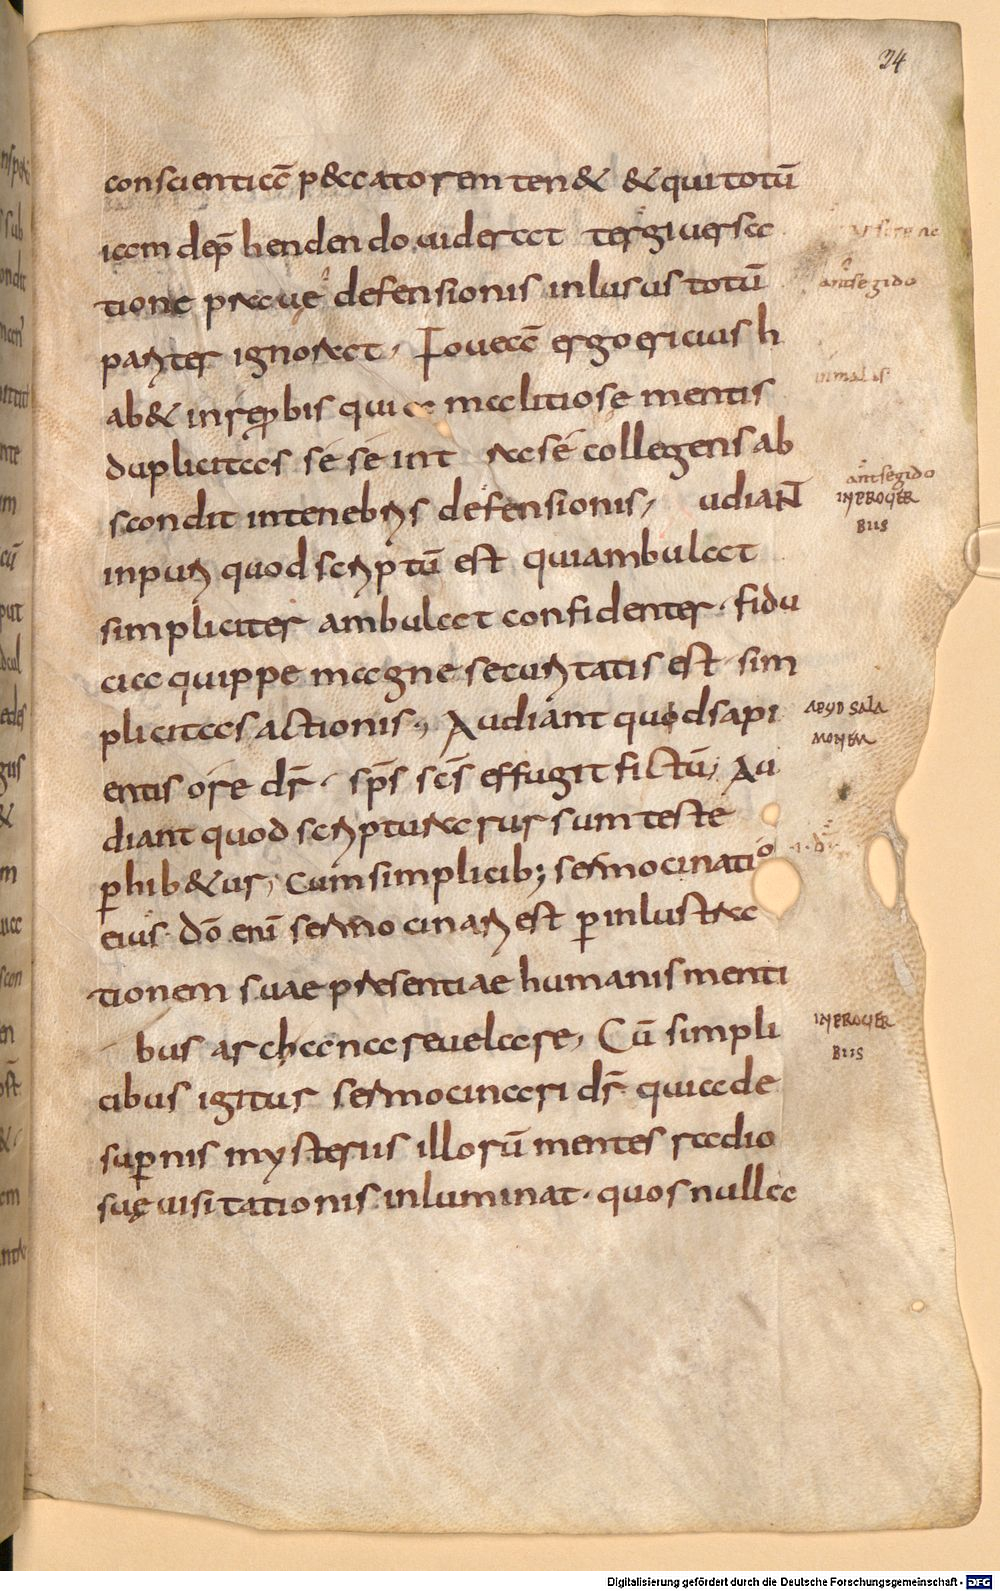 34
conscientiã p&ccatorem ten& &qui totū
iam dep̄hendendo uiderat tergiuersa
tione prauę defensionis inlusus totū
pariter ignorat. Foueā ergo ericius h
ab& inrep̱bis quia malitiose mentis
duplicitas sé sé int rasé collegens ab
scondit intenebris defensionis, udiant
inpuri quod scriptū est qui ambulat
simpliciter ambulat confidenter. fidu
cia quippe magne securitatis est sim
plicitas actionis, Audiant quod sapi
entis ore dr̄. sp̄s sc̄s effugit fictū, Au
diant quod scriptura rursum teste
p̱hib&ur, cum simplicib; sermocinatio
eius. dō eni sermocinari est p̱ inlustra
tionem suae presentiae humanis menti
bus archana reuelare, Cū simpli
cibus igitur sermocinari dr̄ qui ade
sup̱nis mysteriis illorū mentes radio
suę uisitationis inluminat. quos nulla
antsegido
in malis
antsegido
IN PROUER
BIIS
APUD SALA
MONEM
.i. d̄
IN PROUER
BIIS
Digitalisierung gefördert durch die Deutsche Forschungsgemeinschaft - DFG